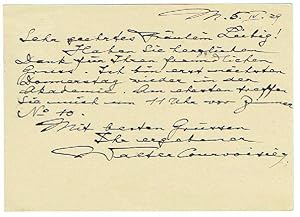 M. 5. IV. 29
Sehr geehrtes Fräulein Liebig!
Haben Sie herzlichen
Dank für Ihren freundlichen
Gruss. Ich bin erst nächsten
Donnerstag wieder in der
Akademie. Am ehesten treffen
Sie mich um 11 Uhr vor Zimmer
No 10.
Mit besten Grüssen
Ihr ergebener
Walter Courvoisier